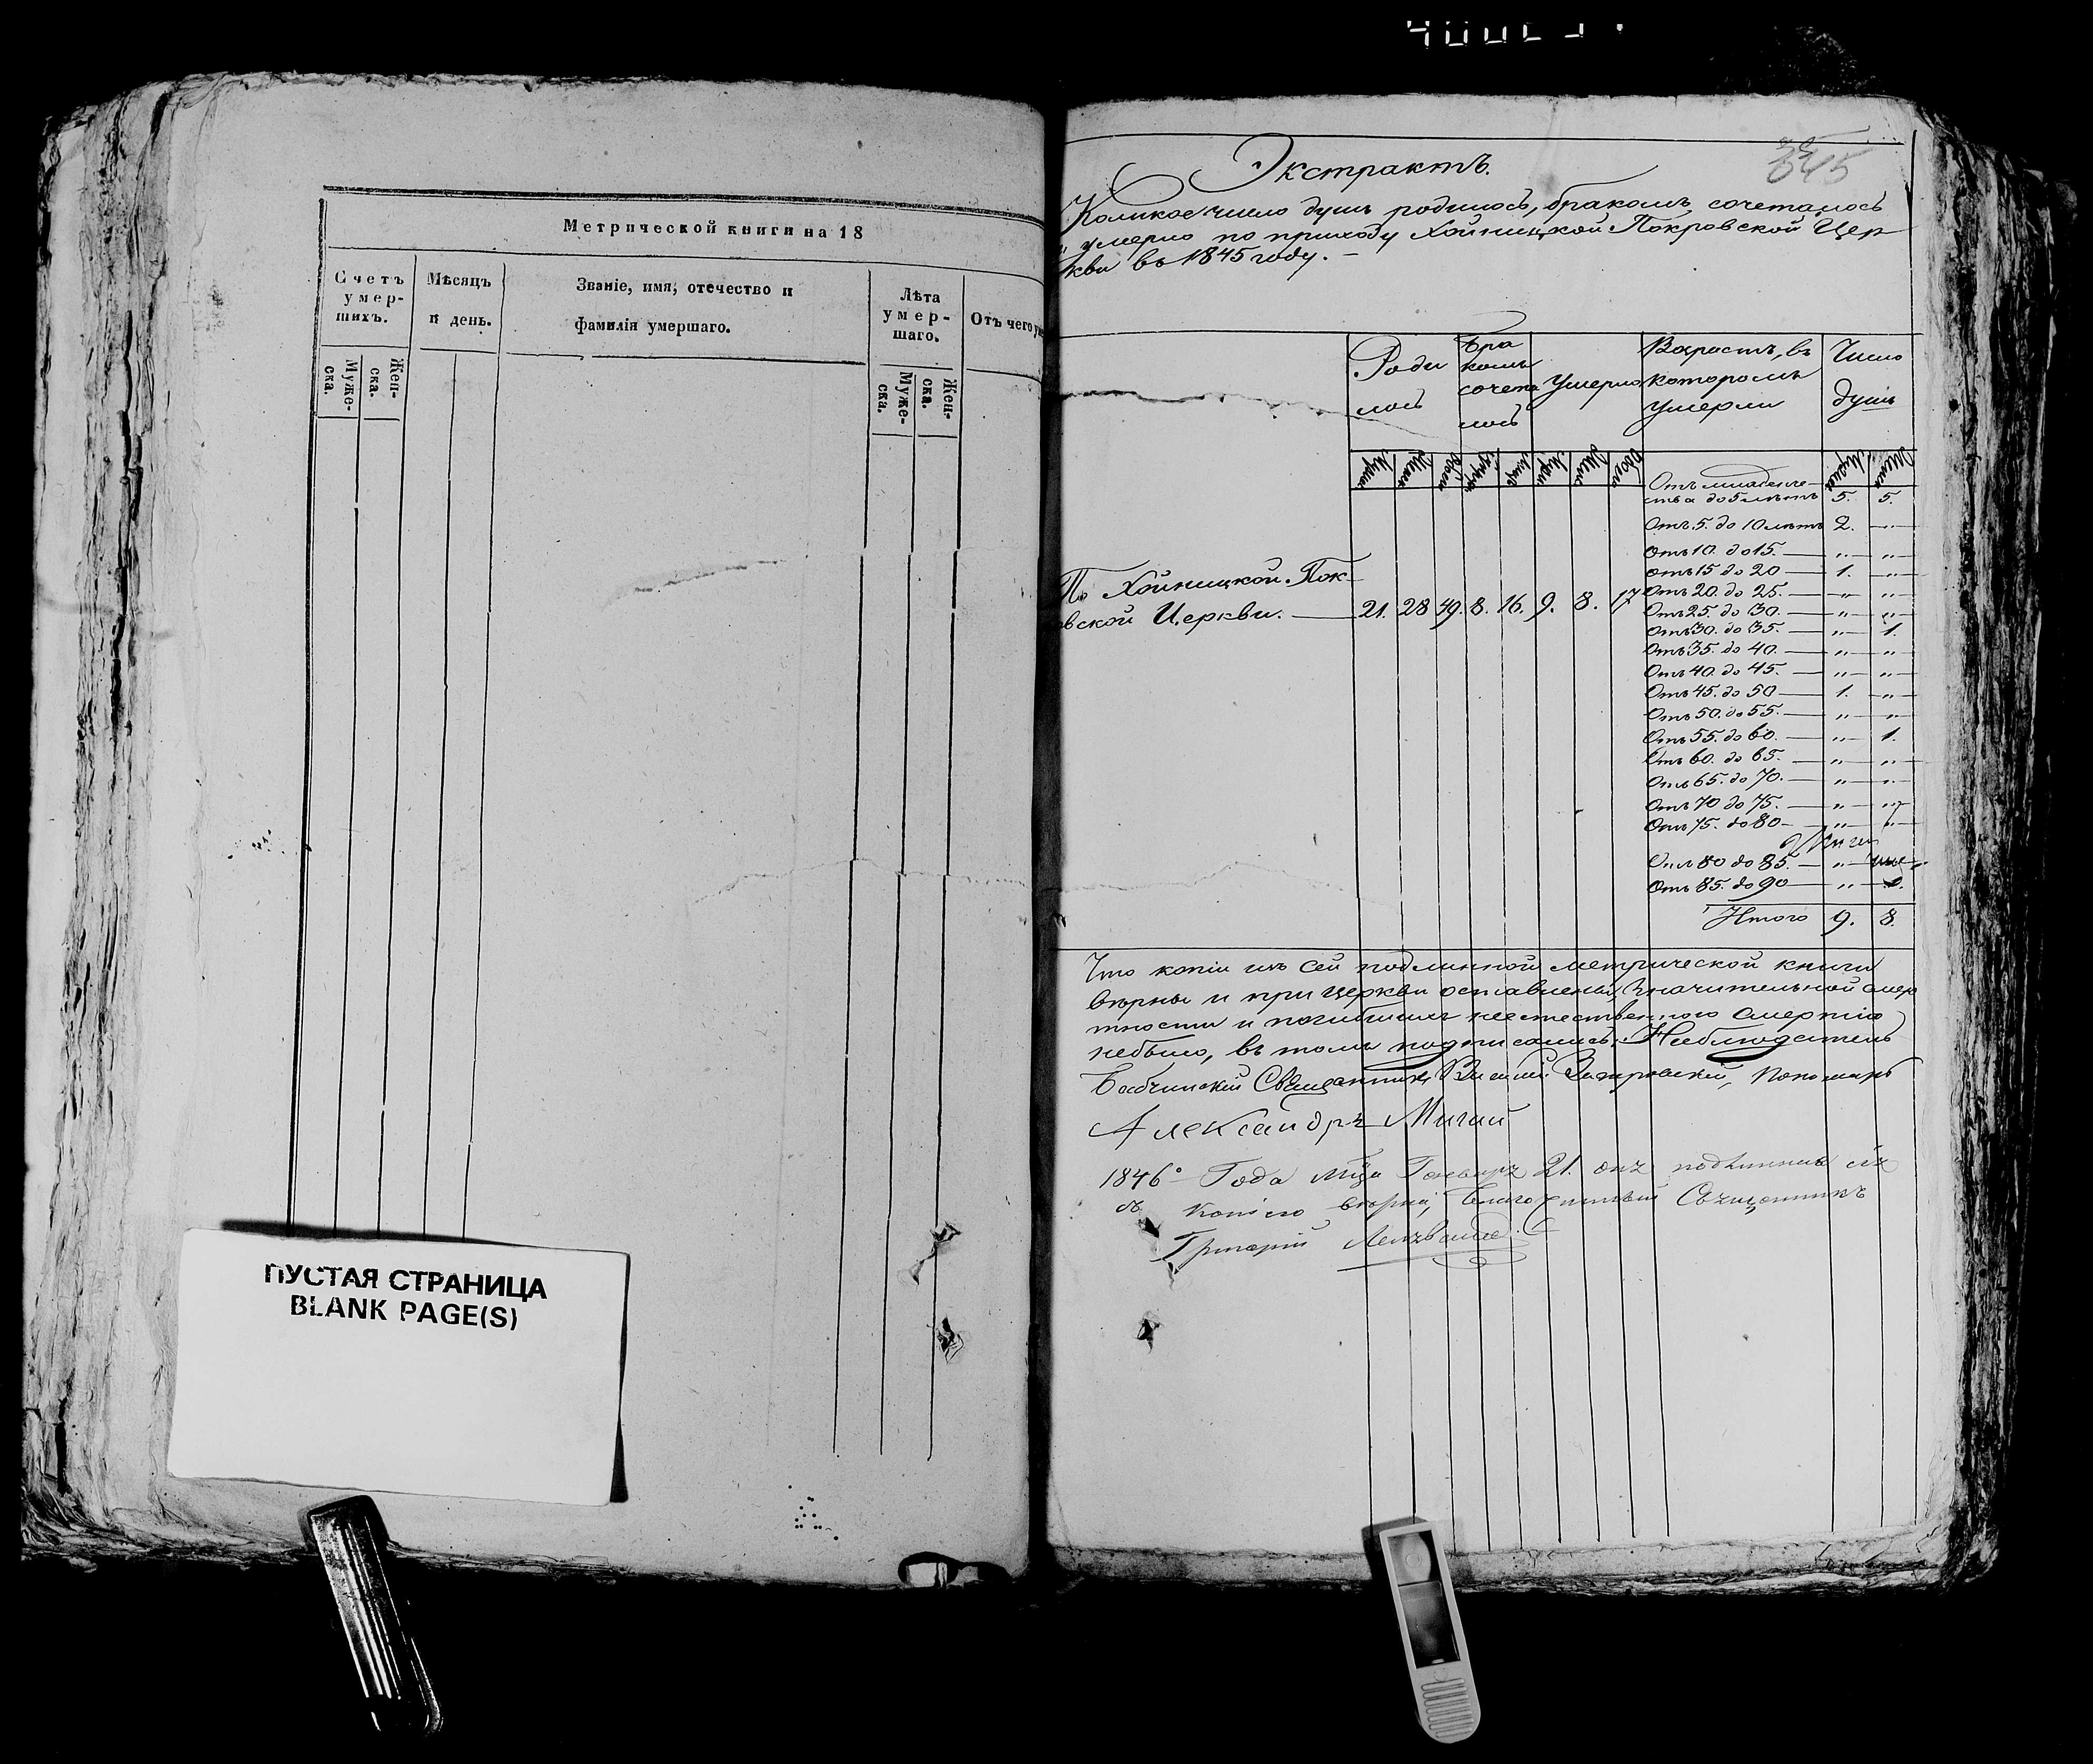 Метрической книги на 18
Счетъ умер-шихъ.
Мѣсяцъ и день.
Званіе, имя, отечество и фамилія умершаго.
Лѣта умер-шаго.
Отъ чего
Муже-ска.
Жен-ска.
Муже-ска.
Жен-ска.
ПУСТАЯ СТРАНИЦА
BLANK PAGE(S)
Экстрактъ.
Коликое число душъ родилось, бракомъ сочеталось
и умерло по приходу Хойницкой Покровской Цер
кви въ 1845 году. —
Роди лось
Бра комъ сочета лось
Умерло
Возрастъ, въ которомъ умерли
Число душъ
Отъ младенче-
ства до 5 лѣтъ 5. 5.
Отъ 5. до 10 лѣтъ 2. —
Отъ 10. до 15. — „ — „
Отъ 15 до 20 — 1. „
Отъ 20. до 25. — „ — „
Отъ 25. до 30. — „ — „
Отъ 30. до 35. — „ — 1.
Отъ 35. до 40. — „ — „
Отъ 40. до 45. — „ — „
Отъ 45. до 50 — 1. „
Отъ 50. до 55. — „ — „
Отъ 55. до 60. — „ — 1.
Отъ 60. до 65. — „ — „
Отъ 65. до 70. — „ — „
Отъ 70 до 75. — „ — „
Отъ 75. до 80 — „ — „
Отъ 80 до 85. — „ —
Отъ 85. до 90 — „ —
Итого 9. 8.
По Хойницкой Пок-
овской Церкви. — 21. 28 49. 8. 16. 9. 8. 17
Что копіи изъ сей подлинной метрической книги
вѣрны и при церкви оставлены, значительной смер
тности и погибшихъ неестественною смертію
небыло, въ томъ подписались: Наблюдатель
Бабчинскій Священникъ Пономарь
Александръ Мигай
1846 Года Мца Генваря 21. дня подлинная сія
съ копіею вѣрна, Благочинный Священникъ
Григорій